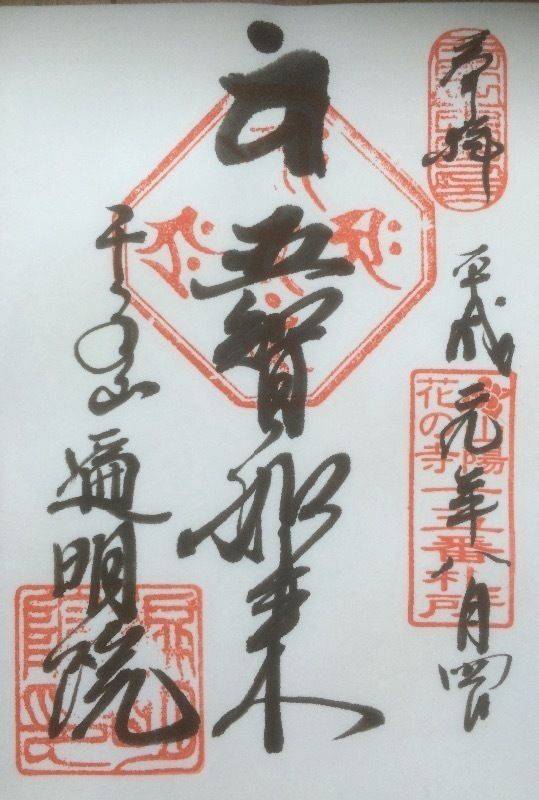 奉拝
平成元年八月四日
山陽
花の寺
番札所
五智如来
千手山
遍明院